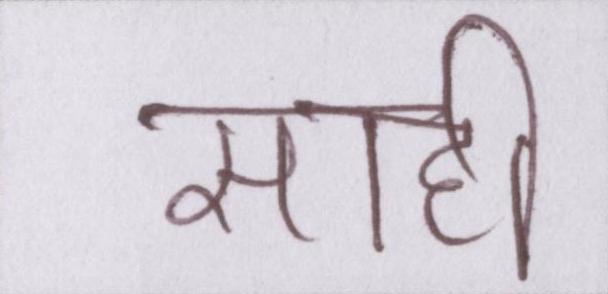 साही